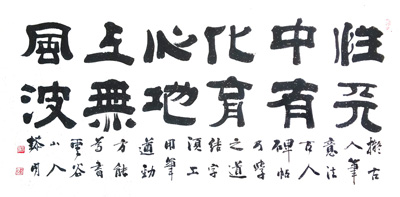 性天
中有
化育
心地
上無
風波
擬古
人筆
意法
古人
碑帖
乃學
之道
結字
須工
用筆
遒勁
方能
善書
雲谷
山人